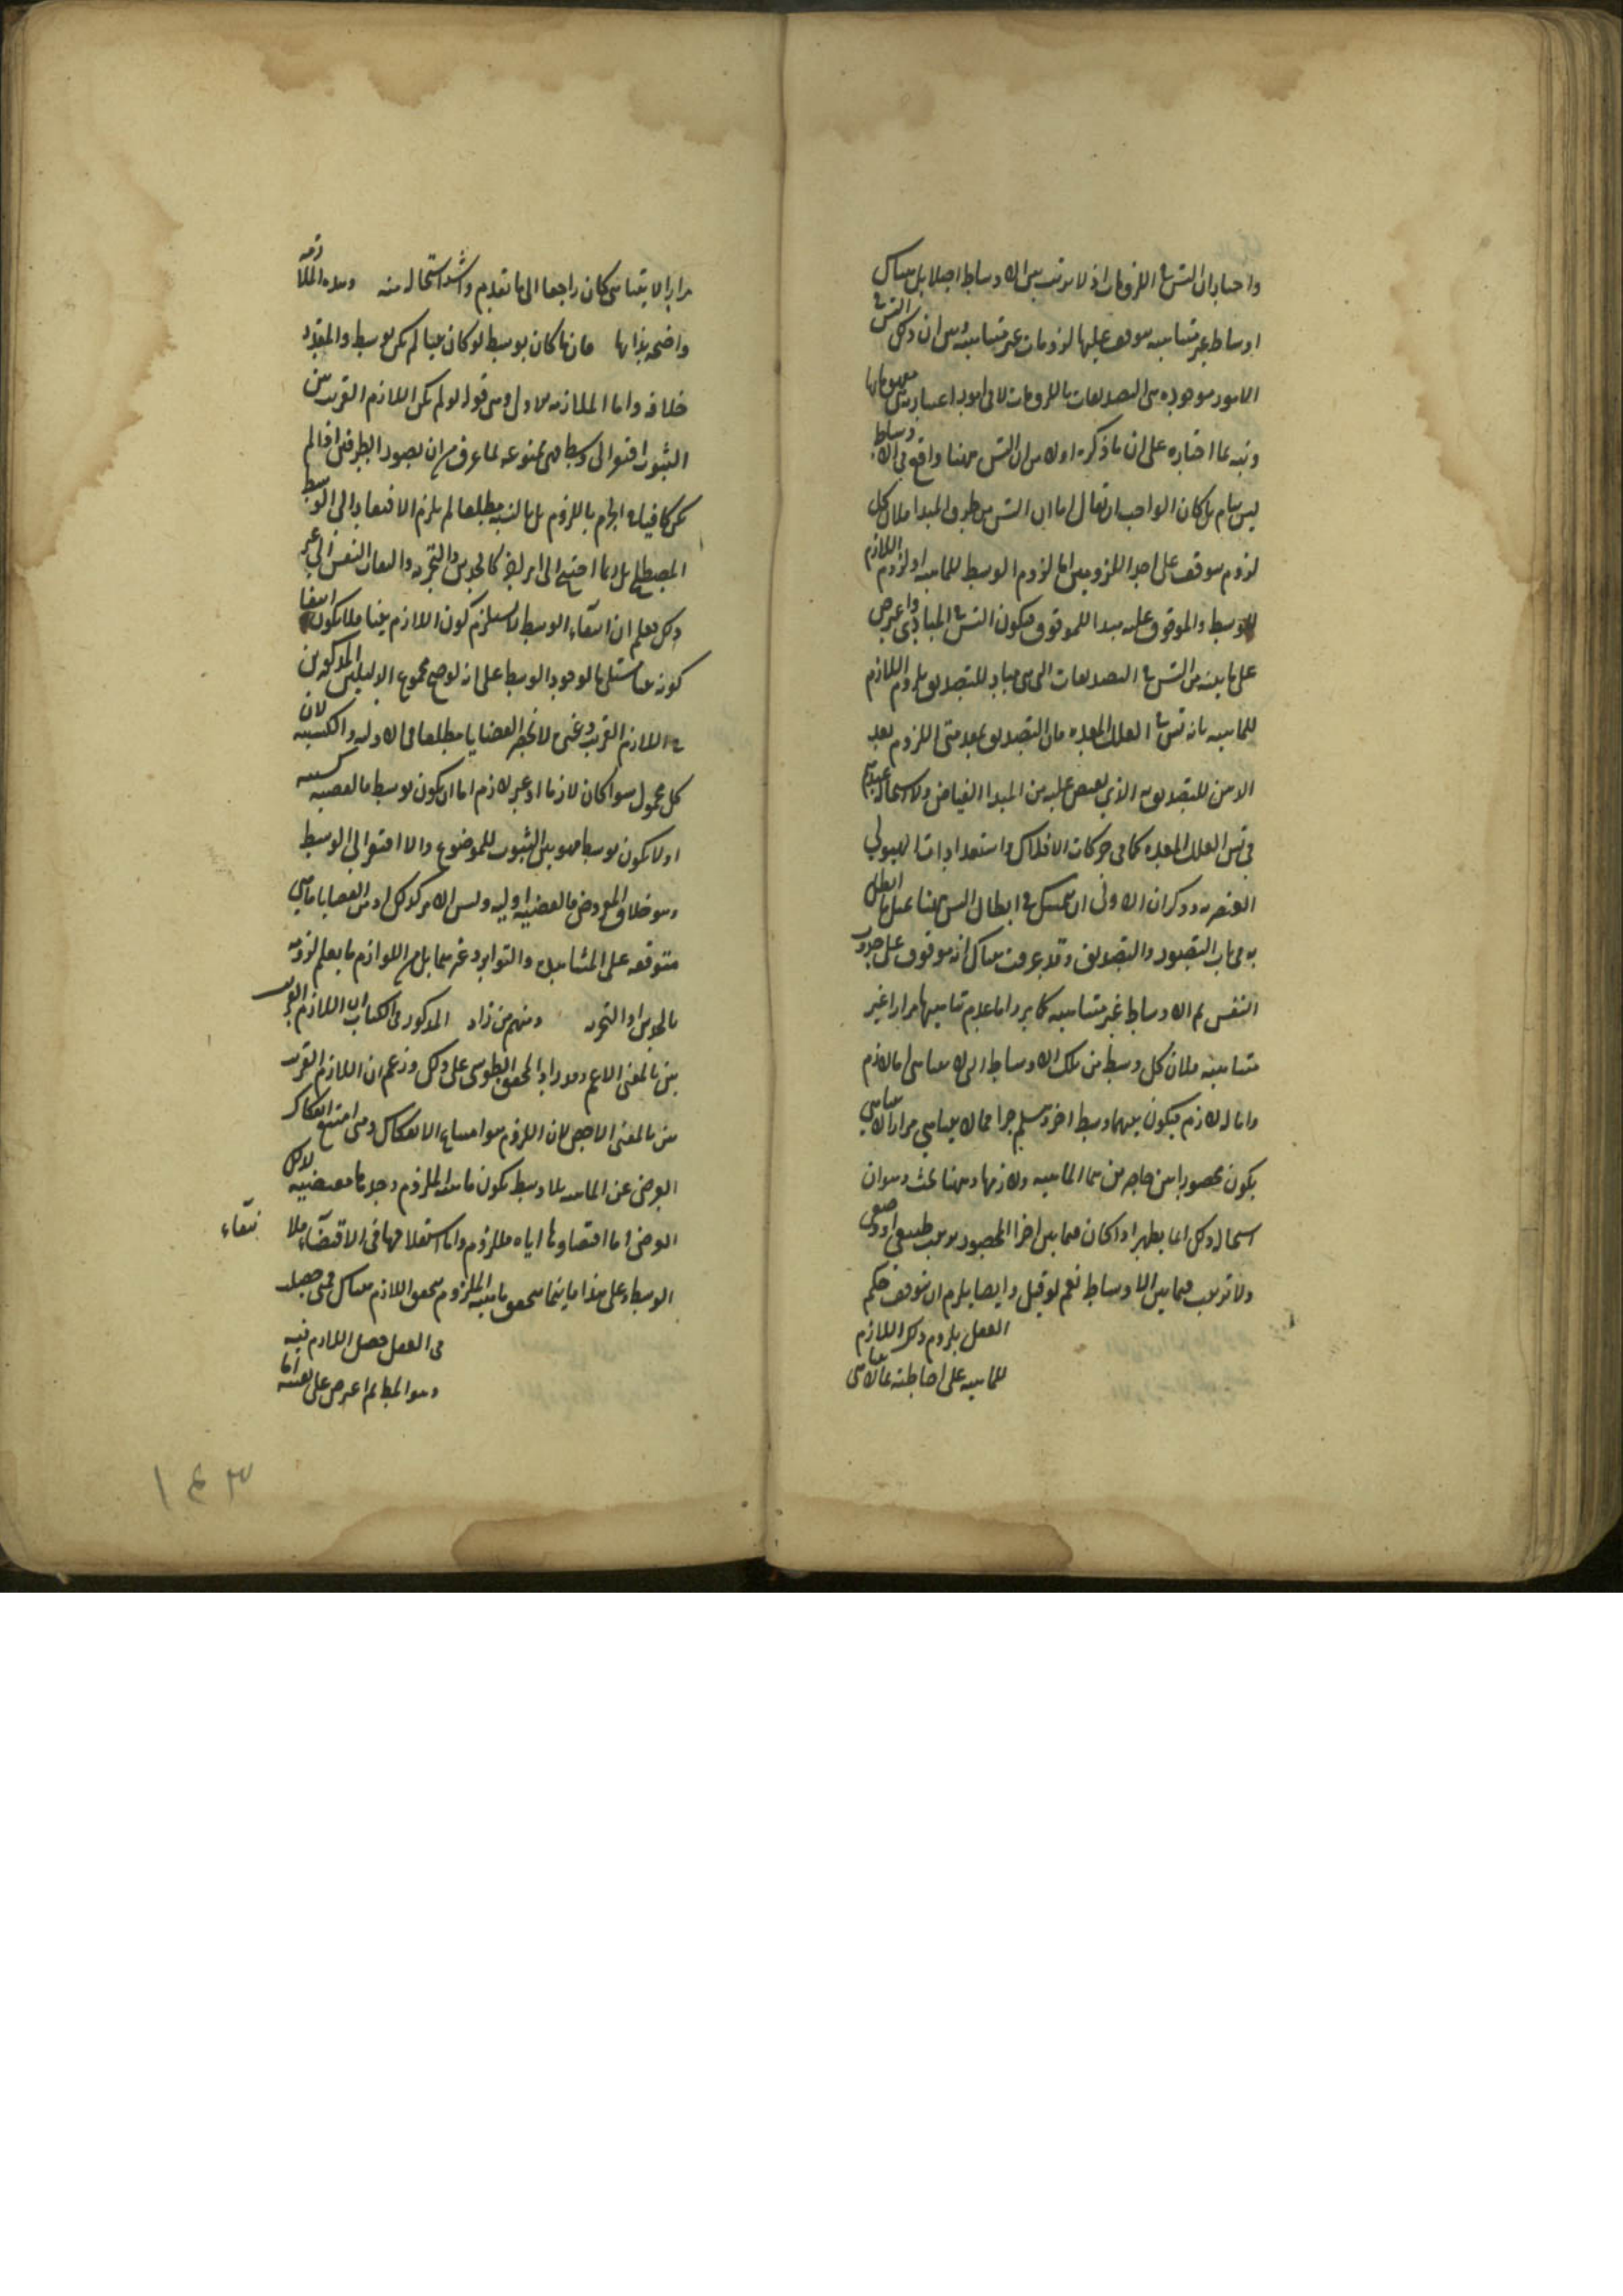 واختار ان التس في اللزومات اذ لا ترتب بين الاوساط اصلا بل هناك
اوساط غير متناهيه موقف عليها لزومات غير متناهيه وبين ان ذلك التس في
الامور موجوده هي التصديقات باللزومات لا في امور اعتباريه هي مفهوماتها
ونبه بما اختاره على ان ما ذكره اولا من ان التس ههنا واقع في الاوساط
ليس بتام بل كان الواجب ان يقال اما ان التس من طرف المبدا فلان كل
لزوم موقف على احد اللزومين اما لزوم الوسط للماهيه او لزوم اللازم
للوسط والموقوف عليه مبدا للموقوف فيكون التس في المبادي واعترض
على ما بينه من التس في التصديقات التي هي مباد للتصديق بلزوم اللازم
للماهيه بانه تس في العلل المعده فان التصديق بمقدمتي اللزوم يعد
الذهن للتصديق به الذي يفيض عليه من المبدا الفياض ولا استحاله عندهم
في تس العلل المعده كما في حركات الافلاك واستعدادات الهيولي
العنصريه وذكر ان الاولى ان يتمسك في ابطال التس ههنا بمثل ما ابطل
به في باب التصور والتصديق وقد عرفت هناك انه موقوف على حدوث
النفس ثم الاوساط غير متناهيه كما مر واما عدم تناهيها مرارا غير
متناهيه فلان كل وسط من تلك الاوساط التي لا تتناهى اما لازم
واما لا لازم فيكون بينهما وسط اخر وهلم جرا فما لا يتناهي مرارا لا يتناهي
يكون محصورا بين حاصرين هما الماهيه ولازمها وههنا بحث وهو ان
استحاله ذلك انما يظهر اذا كان فيما بين اجزا المحصور ترتيب طبيعي او وضعي
ولا ترتيب فيما بين الاوساط نعم لو قيل وايضا يلزم ان يتوقف حكم
العقل بلزوم ذلك اللازم
للماهيه على احاطته بما لا يتناهى
مرارا لا يتناهى كان راجعا الى ما تقدم واشد استحاله منه وهذه الملازمه
واضحه بذاتها فان ما كان بوسط لو كان بينا لم يكن بوسط والمقدر
خلافه واما الملازمه الاولى وهي قوله لو لم يكن اللازم القريب بين
الثبوت افتقر الى وسط فهي ممنوعه لما عرف من ان تصور الطرفين اذا لم
يكن كافيا في الجزم باللزوم بل بالنسبه مطلقا لم يلزم الافتقار الى الوسط
المصطلح بل ربما احتيج الى امر اخر كالحدس والتجربه والتفات النفس الى غير
ذلك فعلم ان انتفاء الوسط لا يستلزم كون اللازم بينا فلا يكون انتفا
كونه بينا مستلزما لوجود الوسط على انه لو صح مجموع الدليلين المذكورين
في اللازم القريب وغيره لانحصر القضايا مطلقا في الاوليه والكسبيه لان
كل محمول سوا كان لازما او غير لازم اما ان يكون بوسط فالقضيه كسبيه
او لا يكون بوسط فهو بين الثبوت للموضوع والا افتقر الى الوسط
وهو خلاف المفروض فالقضيه اوليه وليس الامر كذلك اذ من القضايا ما هي
متوقفه على المشاهده والتواتر وغيرهما بل من اللوازم ما يعلم لزومه
بالحدس او التجربه ومنهم من زاد المذكور في الكتاب ان اللازم القريب
بين بالمعنى الاعم وقد زاد المحقق الطوسي على ذلك وزعم ان اللازم القريب
بين بالمعنى الاخص لان اللزوم هو امتناع الانفكاك ومتى امتنع انفكاك
العرضي عن الماهيه بلا وسط يكون ماهيه الملزوم وحدها مقتضيه لذلك
العرضي اما اقتضاوها اياه فللزوم واما استقلالها في الاقتضاء فلا نتفاء
الوسط وعلى هذا فاينما تحقق ماهيه الملزوم تحقق اللازم هناك فمتى حصلت
في العقل حصل اللازم فيه
وهو المط ثم اعترض على نفسه اما
١٤٣